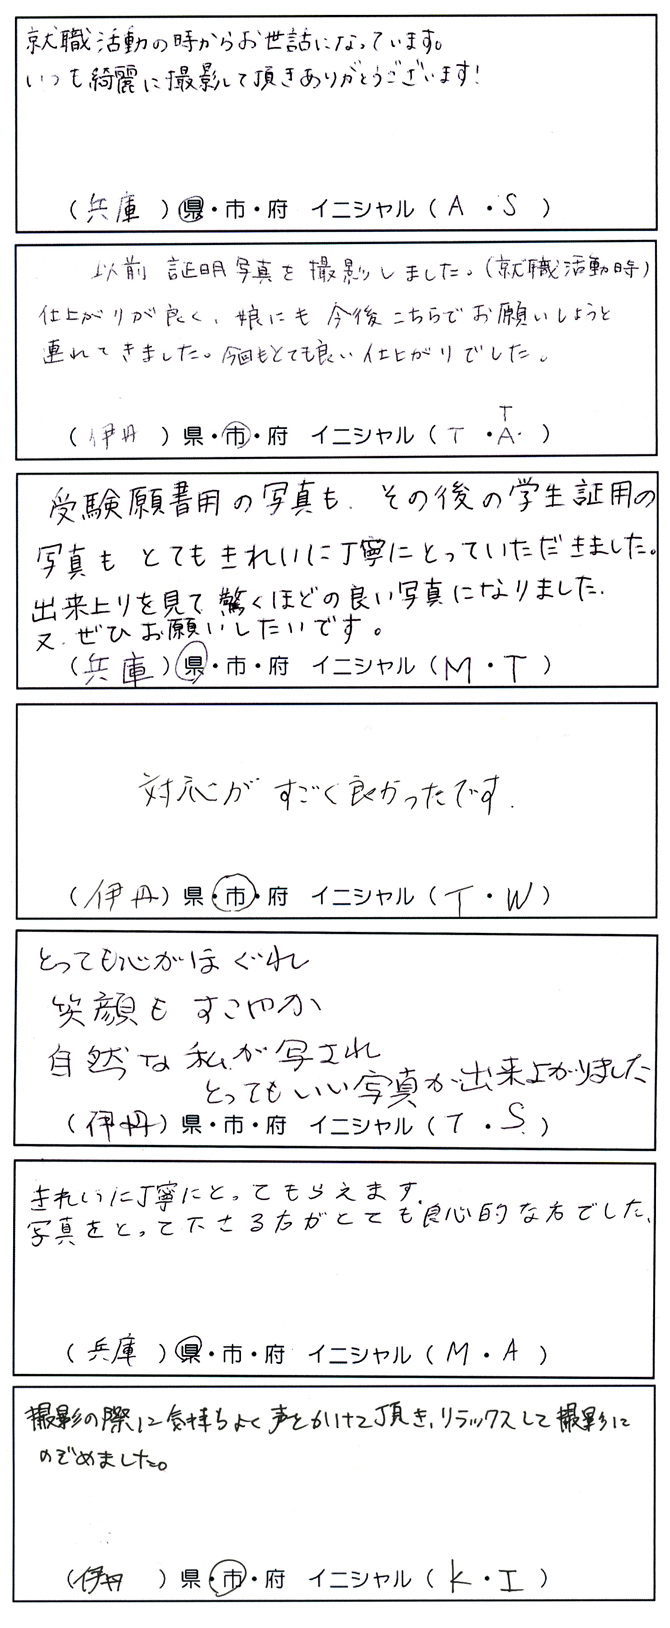 就職活動の時からお世話になっています。
いつも綺麗に撮影して頂きありがとうございます!
(兵庫)県・市・府 イニシャル(A・S)
以前 証明写真を撮影しました。(就職活動時)
仕上がりが良く、娘にも今後こちらでお願いしようと
連れてきました。今回もとても良い仕上がりでした。
T
(伊丹)県・市・府 イニシャル(T・A)
受験願書用の写真も、その後の学生証用の
写真も とてもきれいに丁寧にとっていただきました。
出来上りを見て驚くほどの良い写真になりました.
又、ぜひお願いしたいです。
(兵庫)県・市・府 イニシャル(M・T)
対応が すごく良かったです.
(伊丹)県・市・府 イニシャル(T・W)
とっても心がほぐれ
笑顔も すこやか
自然な私が写され
とってもいい写真が出来上がりました
(伊丹)県・市・府 イニシャル(T・S)
きれいに丁寧にとってもらえます.
写真をとって下さる方がとても良心的な方でした、
(兵庫)県・市・府 イニシャル(M・A)
撮影の際に気持ちよく声をかけて頂き、リラックスして撮影に
のぞめました。
(伊丹)県・市・府 イニシャル(K・I)